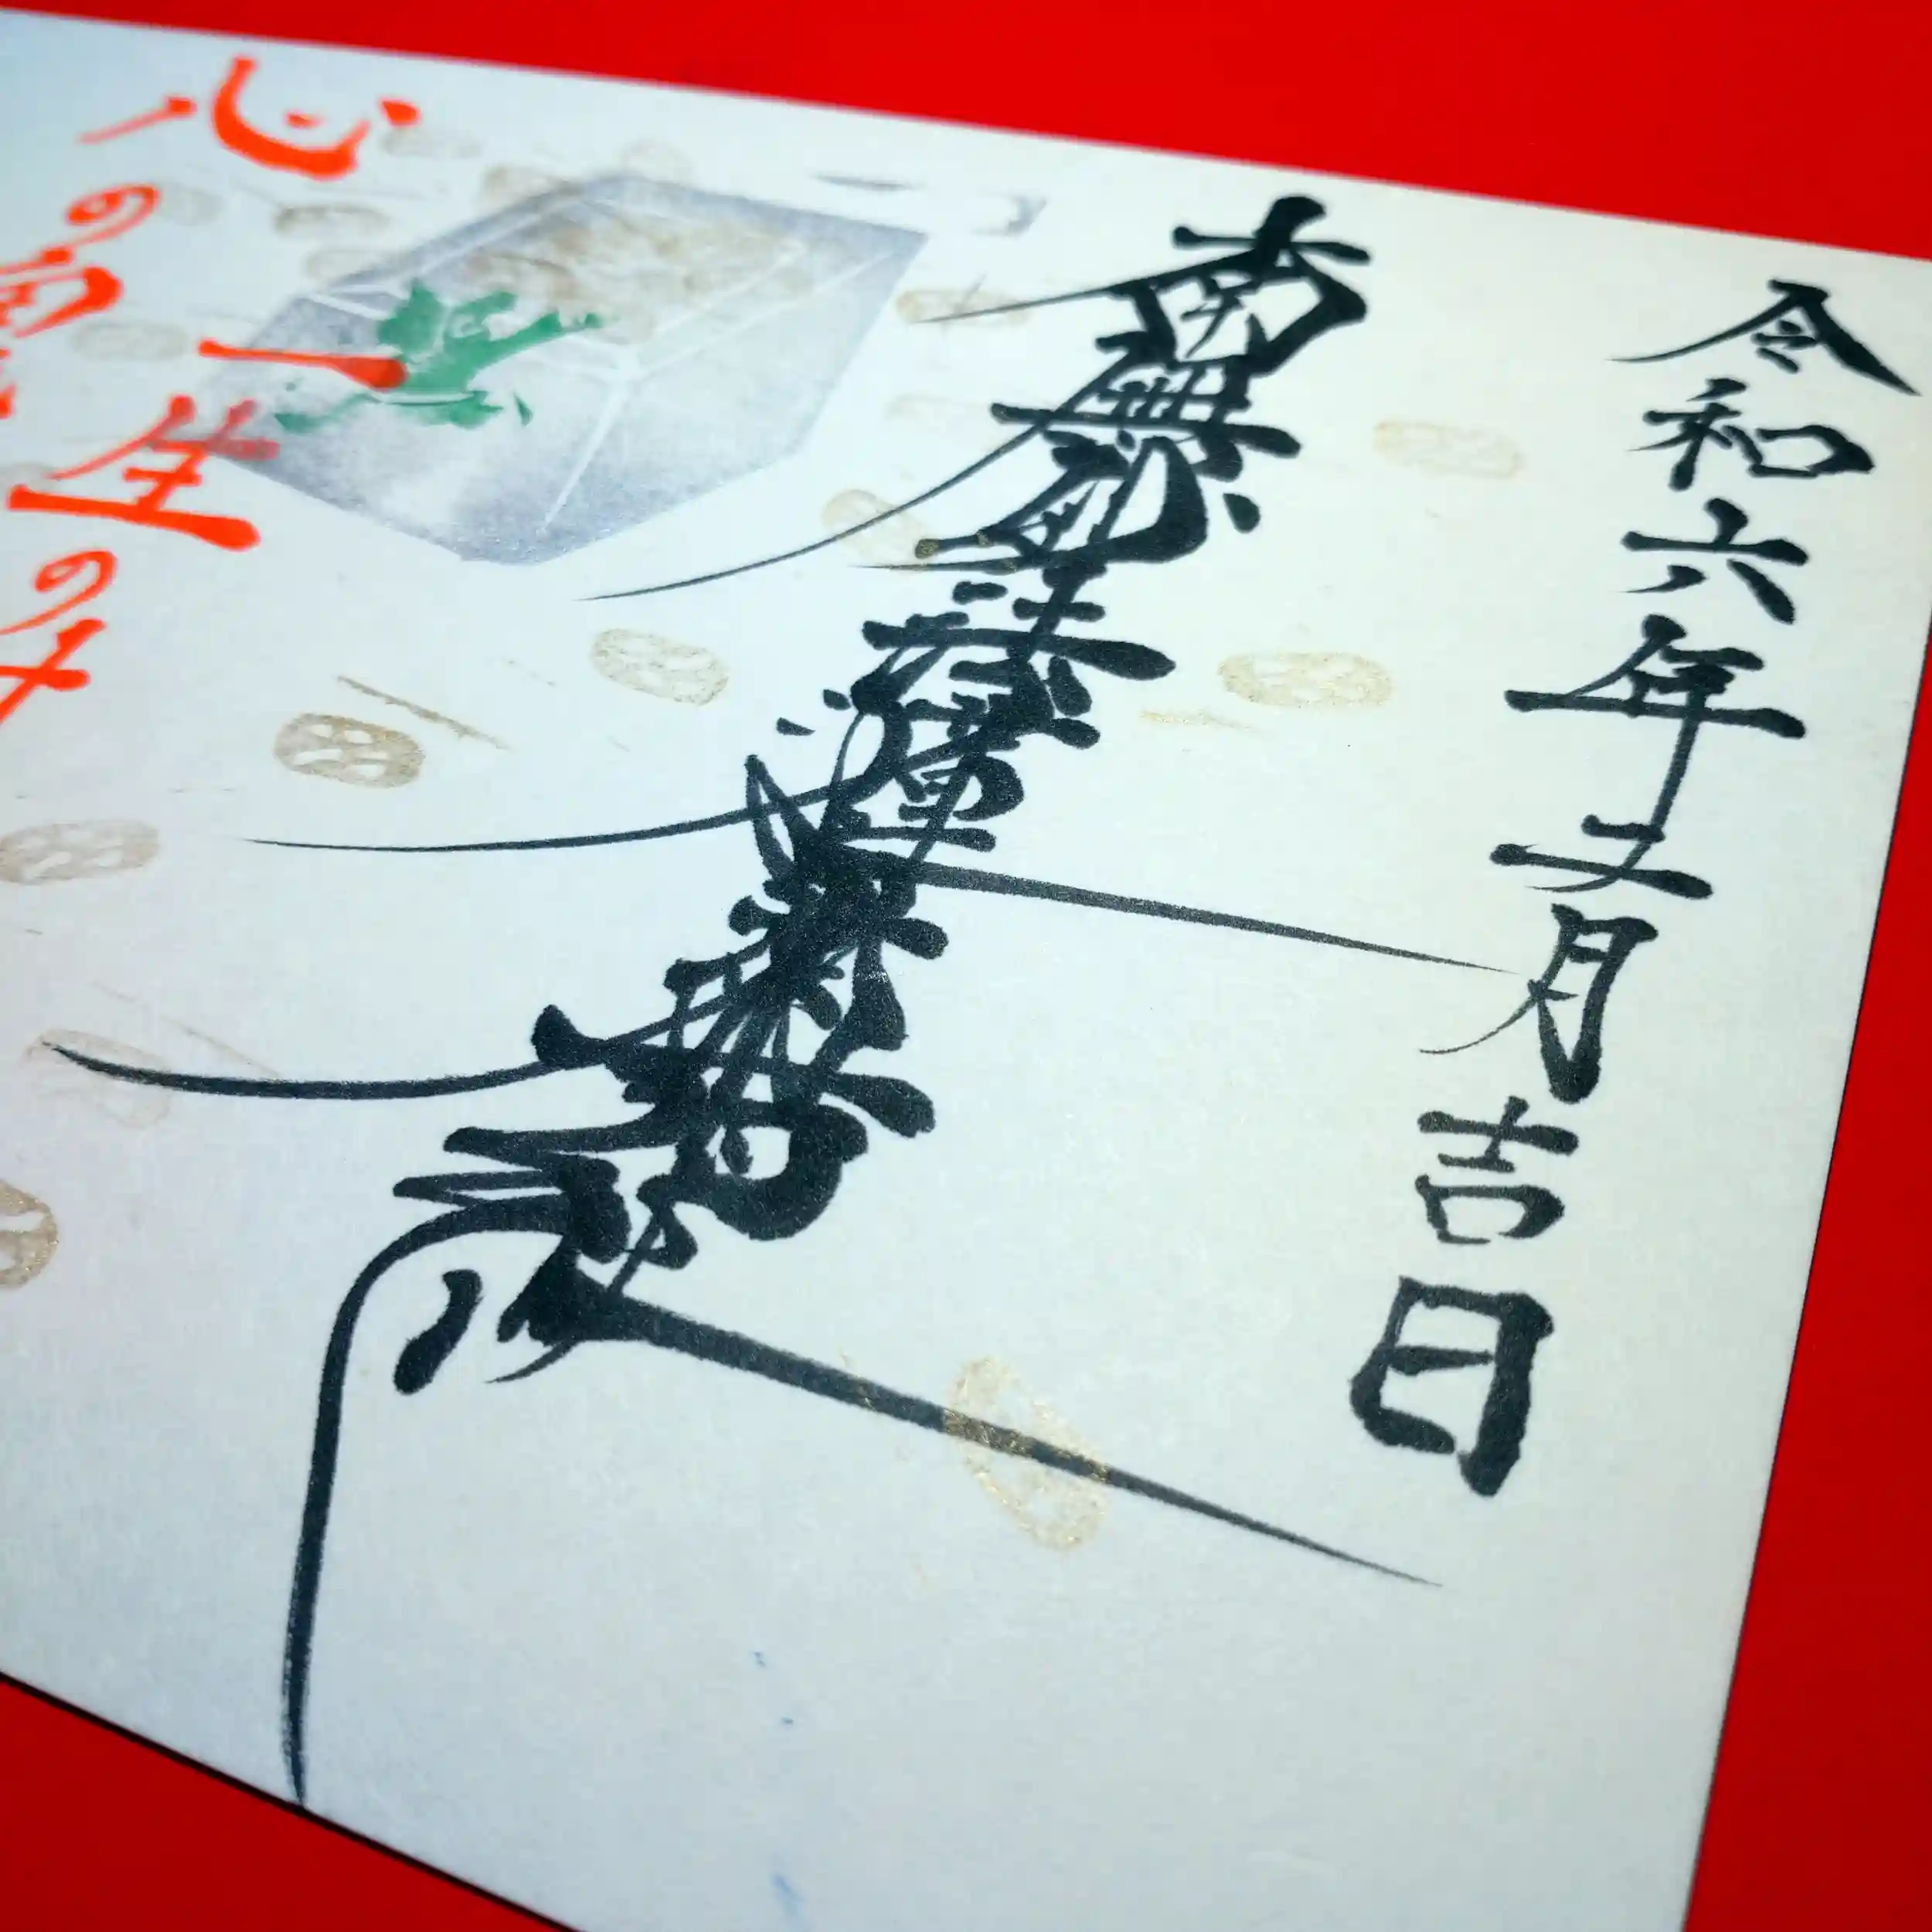 令和六年二月吉日
南無妙法蓮華経
一生の
心の鬼